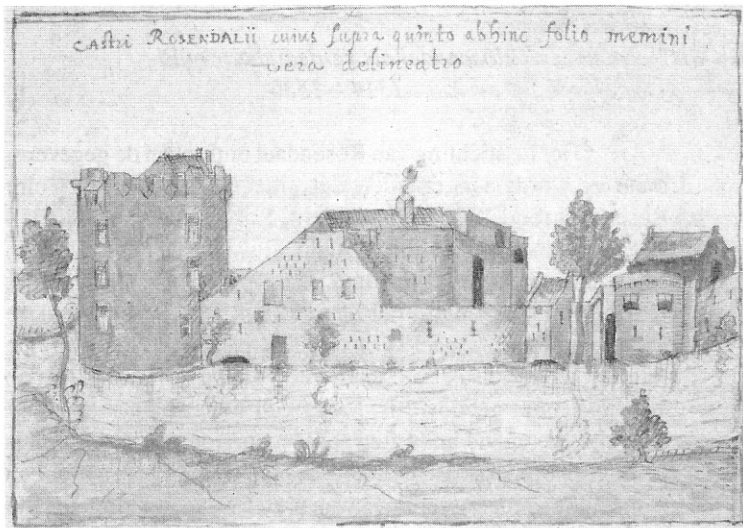 CASTRI ROSENDALII cuius supra quinto abhinc folio memini
vera delineatio